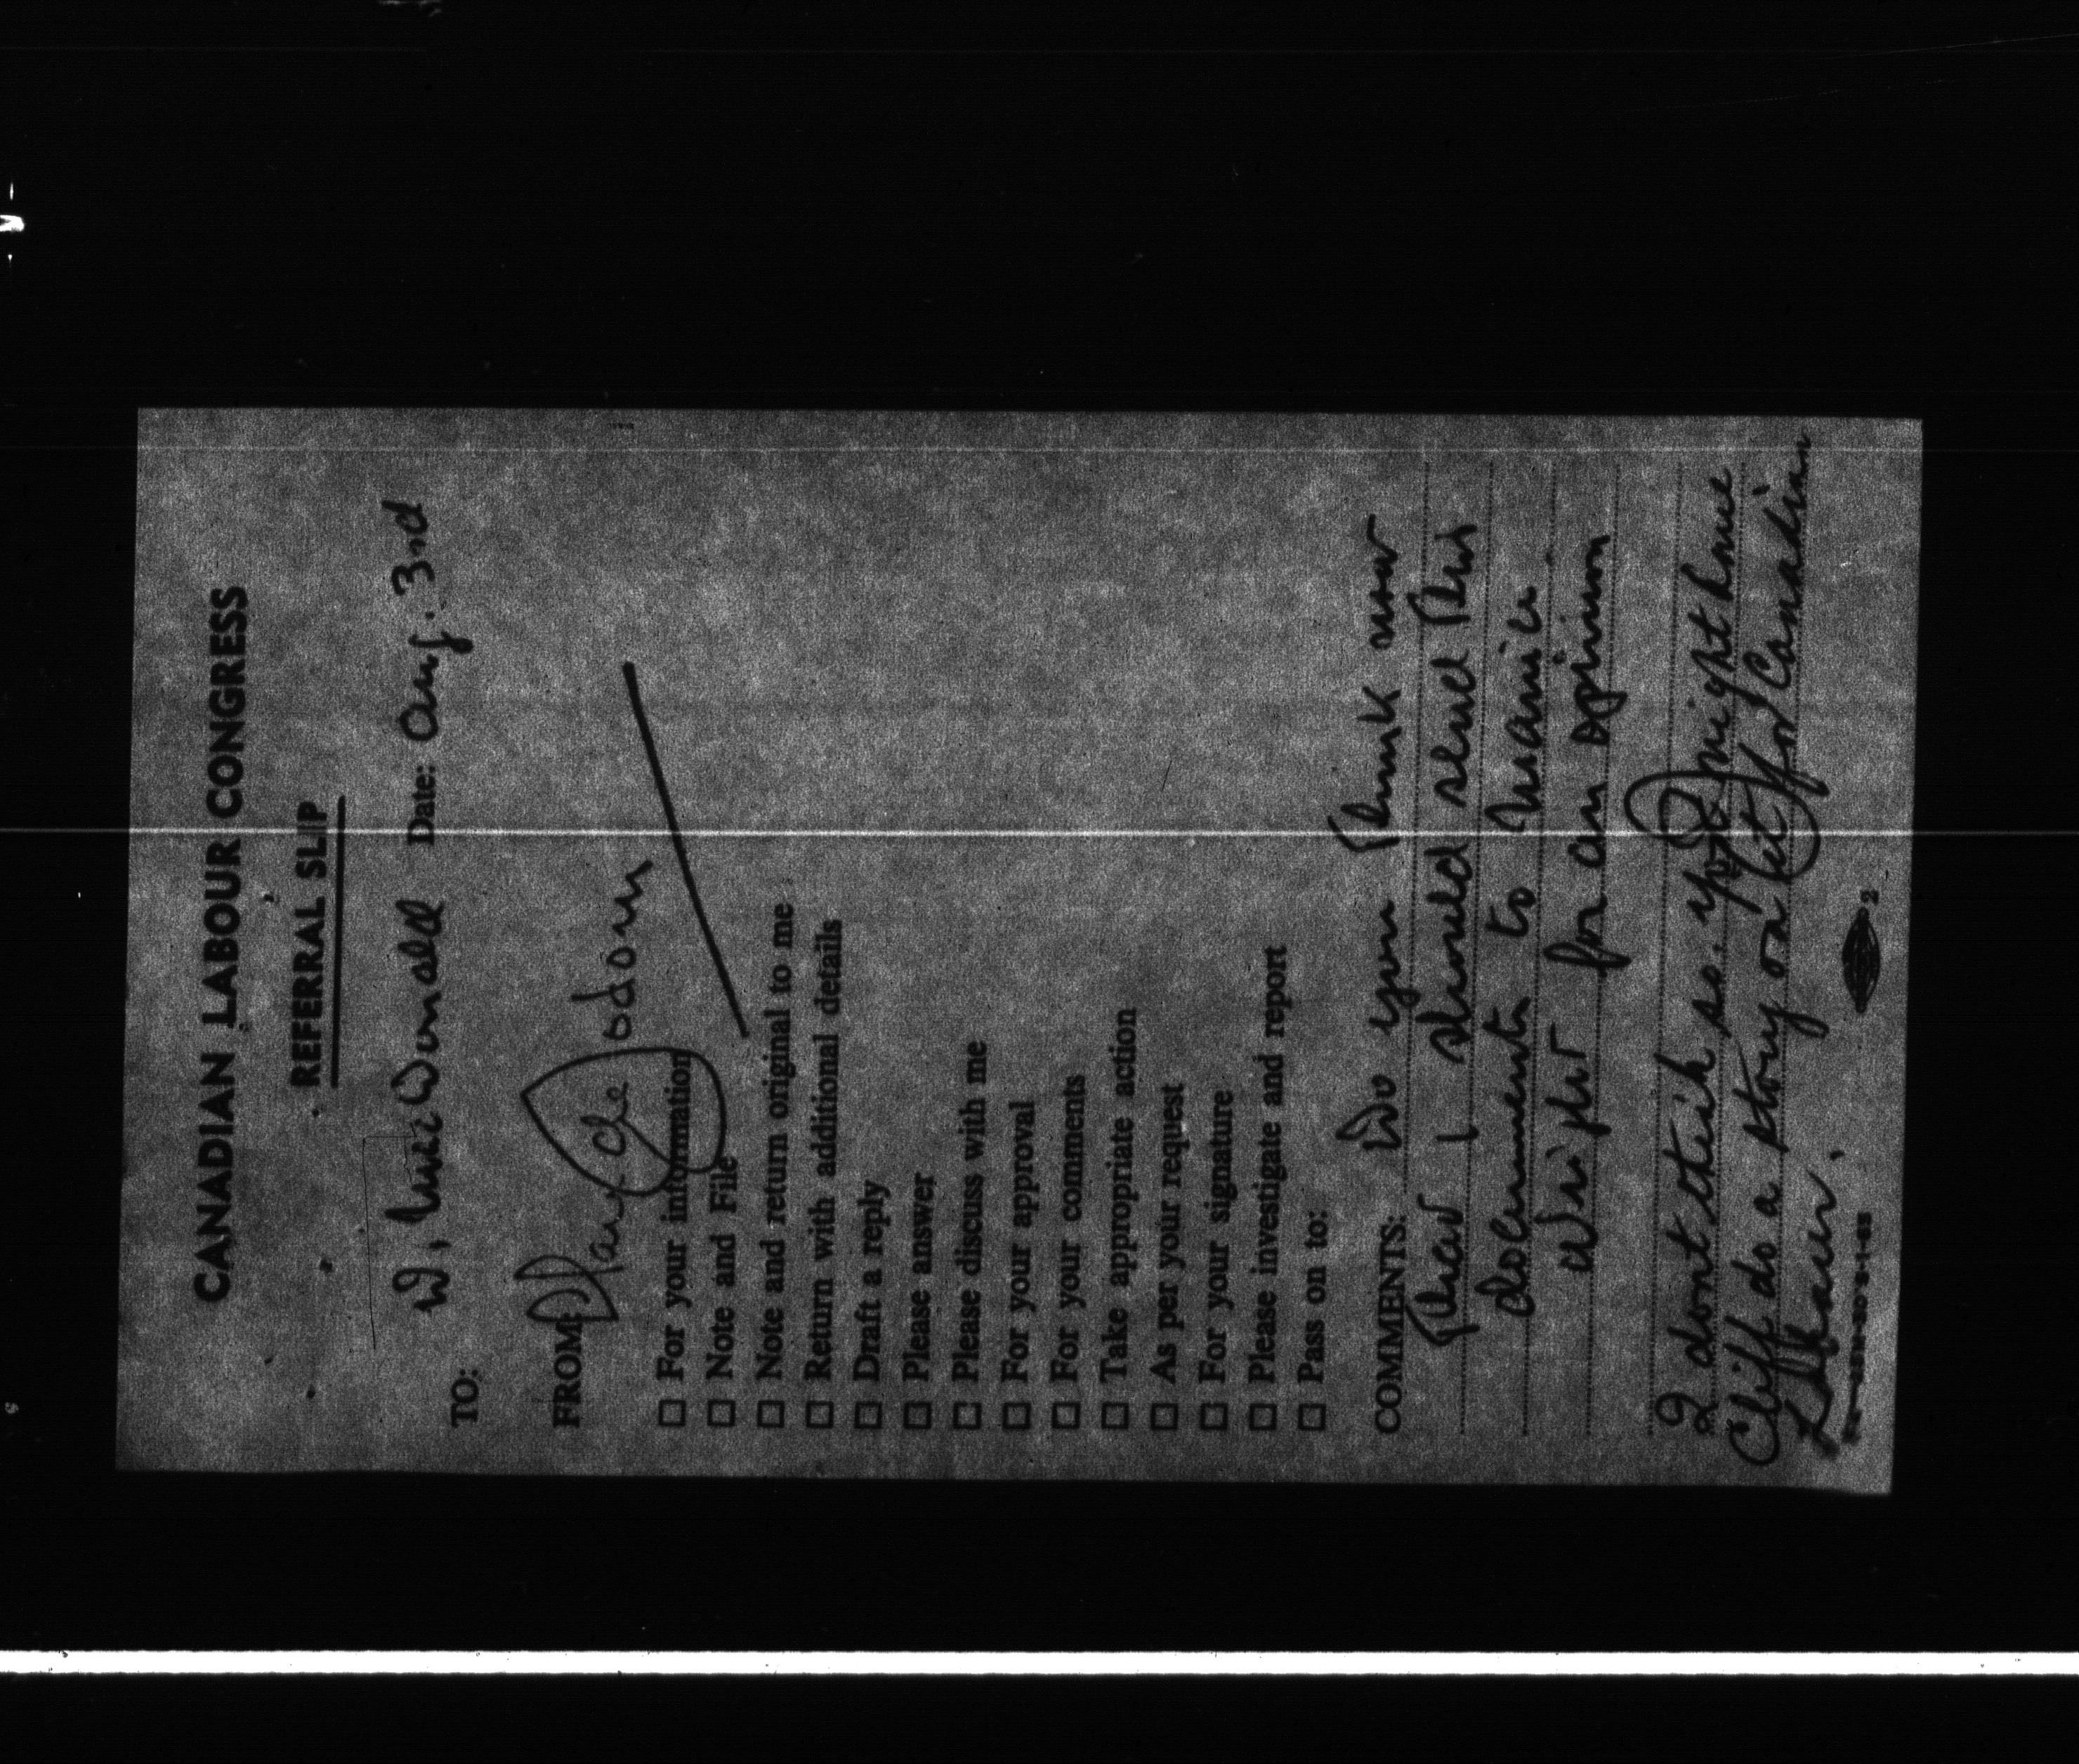 CANADIAN LABOUR CONGRESS
REFERRAL SLIP
TO: W. MacDonald Date: Aug. 3rd
FROM:
☐ For your information
☐ Note and File
☐ Note and return original to me
☐ Return with additional details
☐ Draft a reply
☐ Please answer
☐ Please discuss with me
☐ For your approval
☐ For your comments
☐ Take appropriate action
☐ As per your request
☐ For your signature
☐ Please investigate and report
☐ Pass on to:
COMMENTS: Do you think now
that I should send this
document to Maurice
Wright for an opinion
I dont think so. You might have
Cliff do a story on it for Canadian
Labour.
2